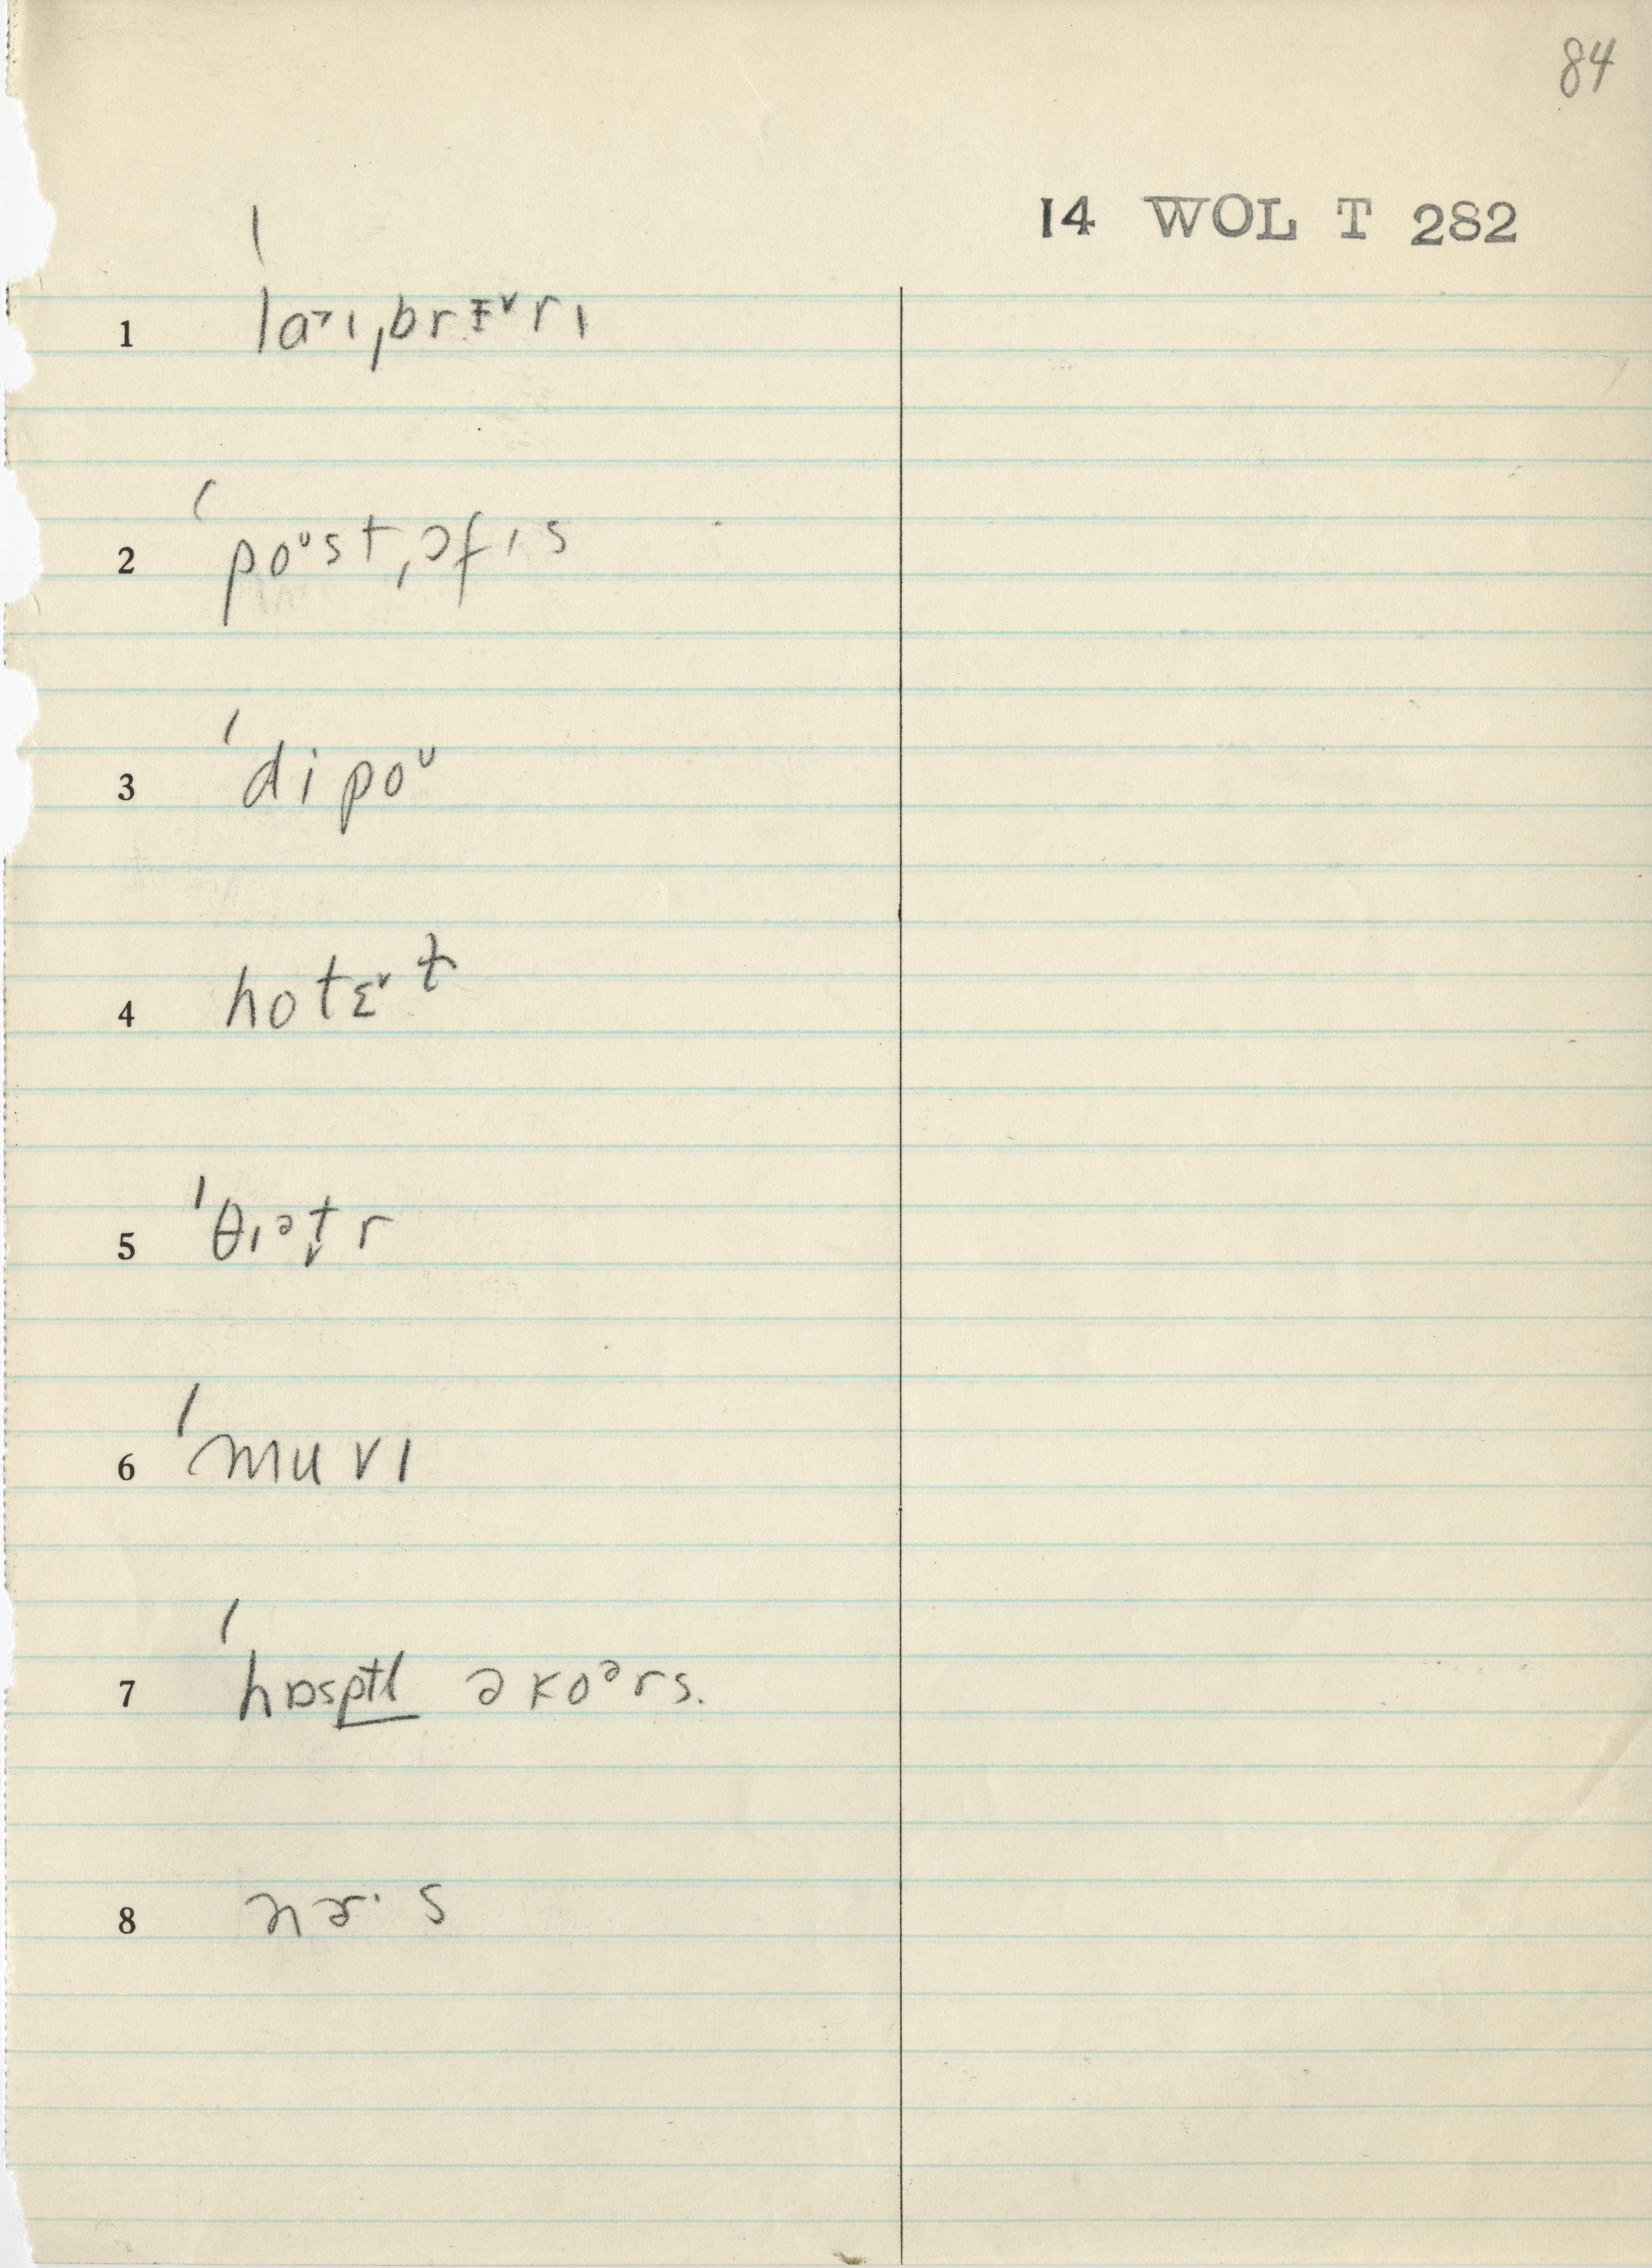 84
14 WOL T 282
1 ˈla˃ɪˌbrɛ˅rɪ
2 ˈpoᴜstˌɔfɪs
3 ˈdipoᴜ
4 hotɛ˅ɫ
5 ˈθɪət̬r
6 ˈmuvɪ
7 ˈhɒsptl əkoərs.
8 nɚ·s